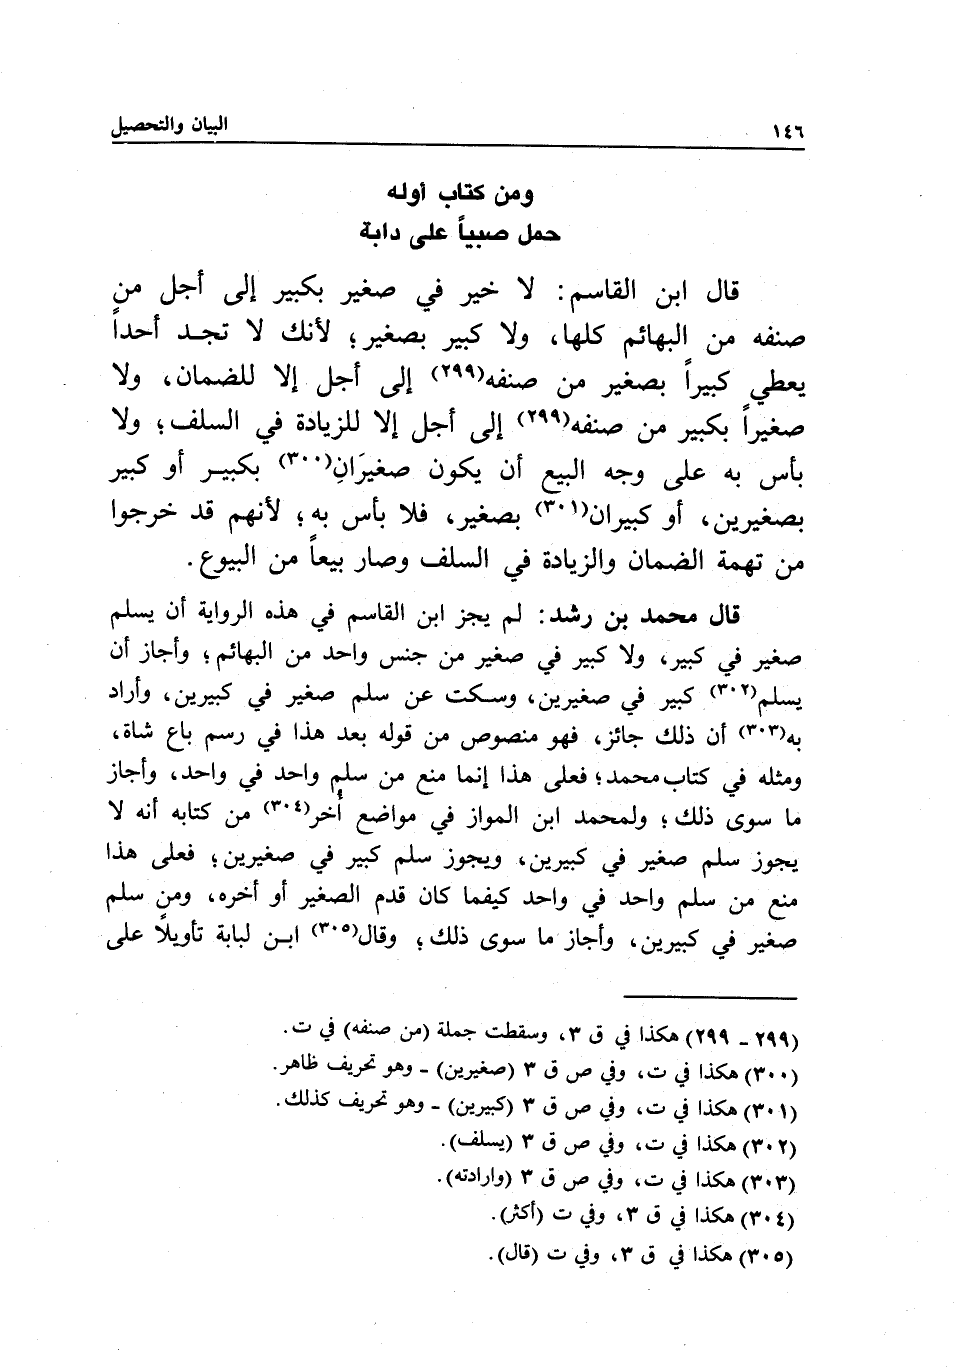 ١٤٦ البيان والتحصيل
ومن كتاب أوله
حمل صبياً على دابة
قال ابن القاسم: لا خير في صغير بكبير إلى أجل من
صنفه من البهائم كلها، ولا كبير بصغير؛ لأنك لا تجد أحداً
يعطي كبيراً بصغير من صنفه(٢٩٩) إلى أجل إلا للضمان، ولا
صغيراً بكبير من صنفه(٢٩٩) إلى أجل إلا للزيادة في السلف؛ ولا
بأس به على وجه البيع أن يكون صغيرَانِ(٣٠٠) بكبير أو كبير
بصغيرين، أو كبيران(٣٠١) بصغير، فلا بأس به؛ لأنهم قد خرجوا
من تهمة الضمان والزيادة في السلف وصار بيعاً من البيوع.
قال محمد بن رشد: لم يجز ابن القاسم في هذه الرواية أن يسلم
صغير في كبير، ولا كبير في صغير من جنس واحد من البهائم؛ وأجاز أن
يسلم(٣٠٢) كبير في صغيرين، وسكت عن سلم صغير في كبيرين، وأراد
به(٣٠٣) أن ذلك جائز، فهو منصوص من قوله بعد هذا في رسم باع شاة،
ومثله في كتاب محمد؛ فعلى هذا إنما منع من سلم واحد في واحد، وأجاز
ما سوى ذلك؛ ولمحمد ابن المواز في مواضع أُخر(٣٠٤) من كتابه أنه لا
يجوز سلم صغير في كبيرين، ويجوز سلم كبير في صغيرين؛ فعلى هذا
منع من سلم واحد في واحد كيفما كان قدم الصغير أو أخره، ومن سلم
صغير في كبيرين، وأجاز ما سوى ذلك؛ وقال(٣٠٥) ابن لبابة تأويلاً على
(٢٩٩ - ٢٩٩) هكذا في ق ٣، وسقطت جملة (من صنفه) في ت.
(٣٠٠) هكذا في ت، وفي ص ق ٣ (صغيرين) - وهو تحريف ظاهر.
(٣٠١) هكذا في ت، وفي ص ق ٣ (كبيرين) - وهو تحريف كذلك.
(٣٠٢) هكذا في ت، وفي ص ق ٣ (يسلف).
(٣٠٣) هكذا في ت، وفي ص ق ٣ (وارادته).
(٣٠٤) هكذا في ق ٣، وفي ت (أكثر).
(٣٠٥) هكذا في ق ٣، وفي ت (قال).